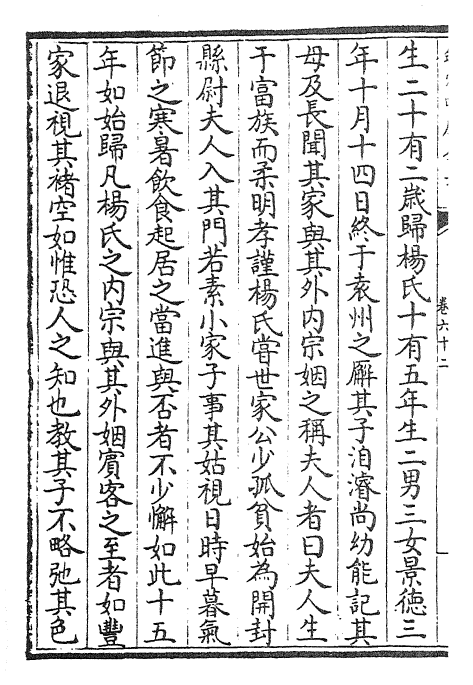 卷六十二
生二十有二歲歸楊氏十有五年生二男三女景德三
年十月十四日終于袁州之廨其子洎濬尚幼能記其
母及長聞其家與其外内宗姻之稱夫人者曰夫人生
于富族而柔明孝謹楊氏嘗世家公少孤貧始為開封
縣尉夫人入其門若素小家子事其姑視日時早暮氣
節之寒暑飲食起居之當進與否者不少懈如此十五
年如始歸凡楊氏之内宗與其外姻賓客之至者如豐
家退視其褚空如惟恐人之知也教其子不略弛其色